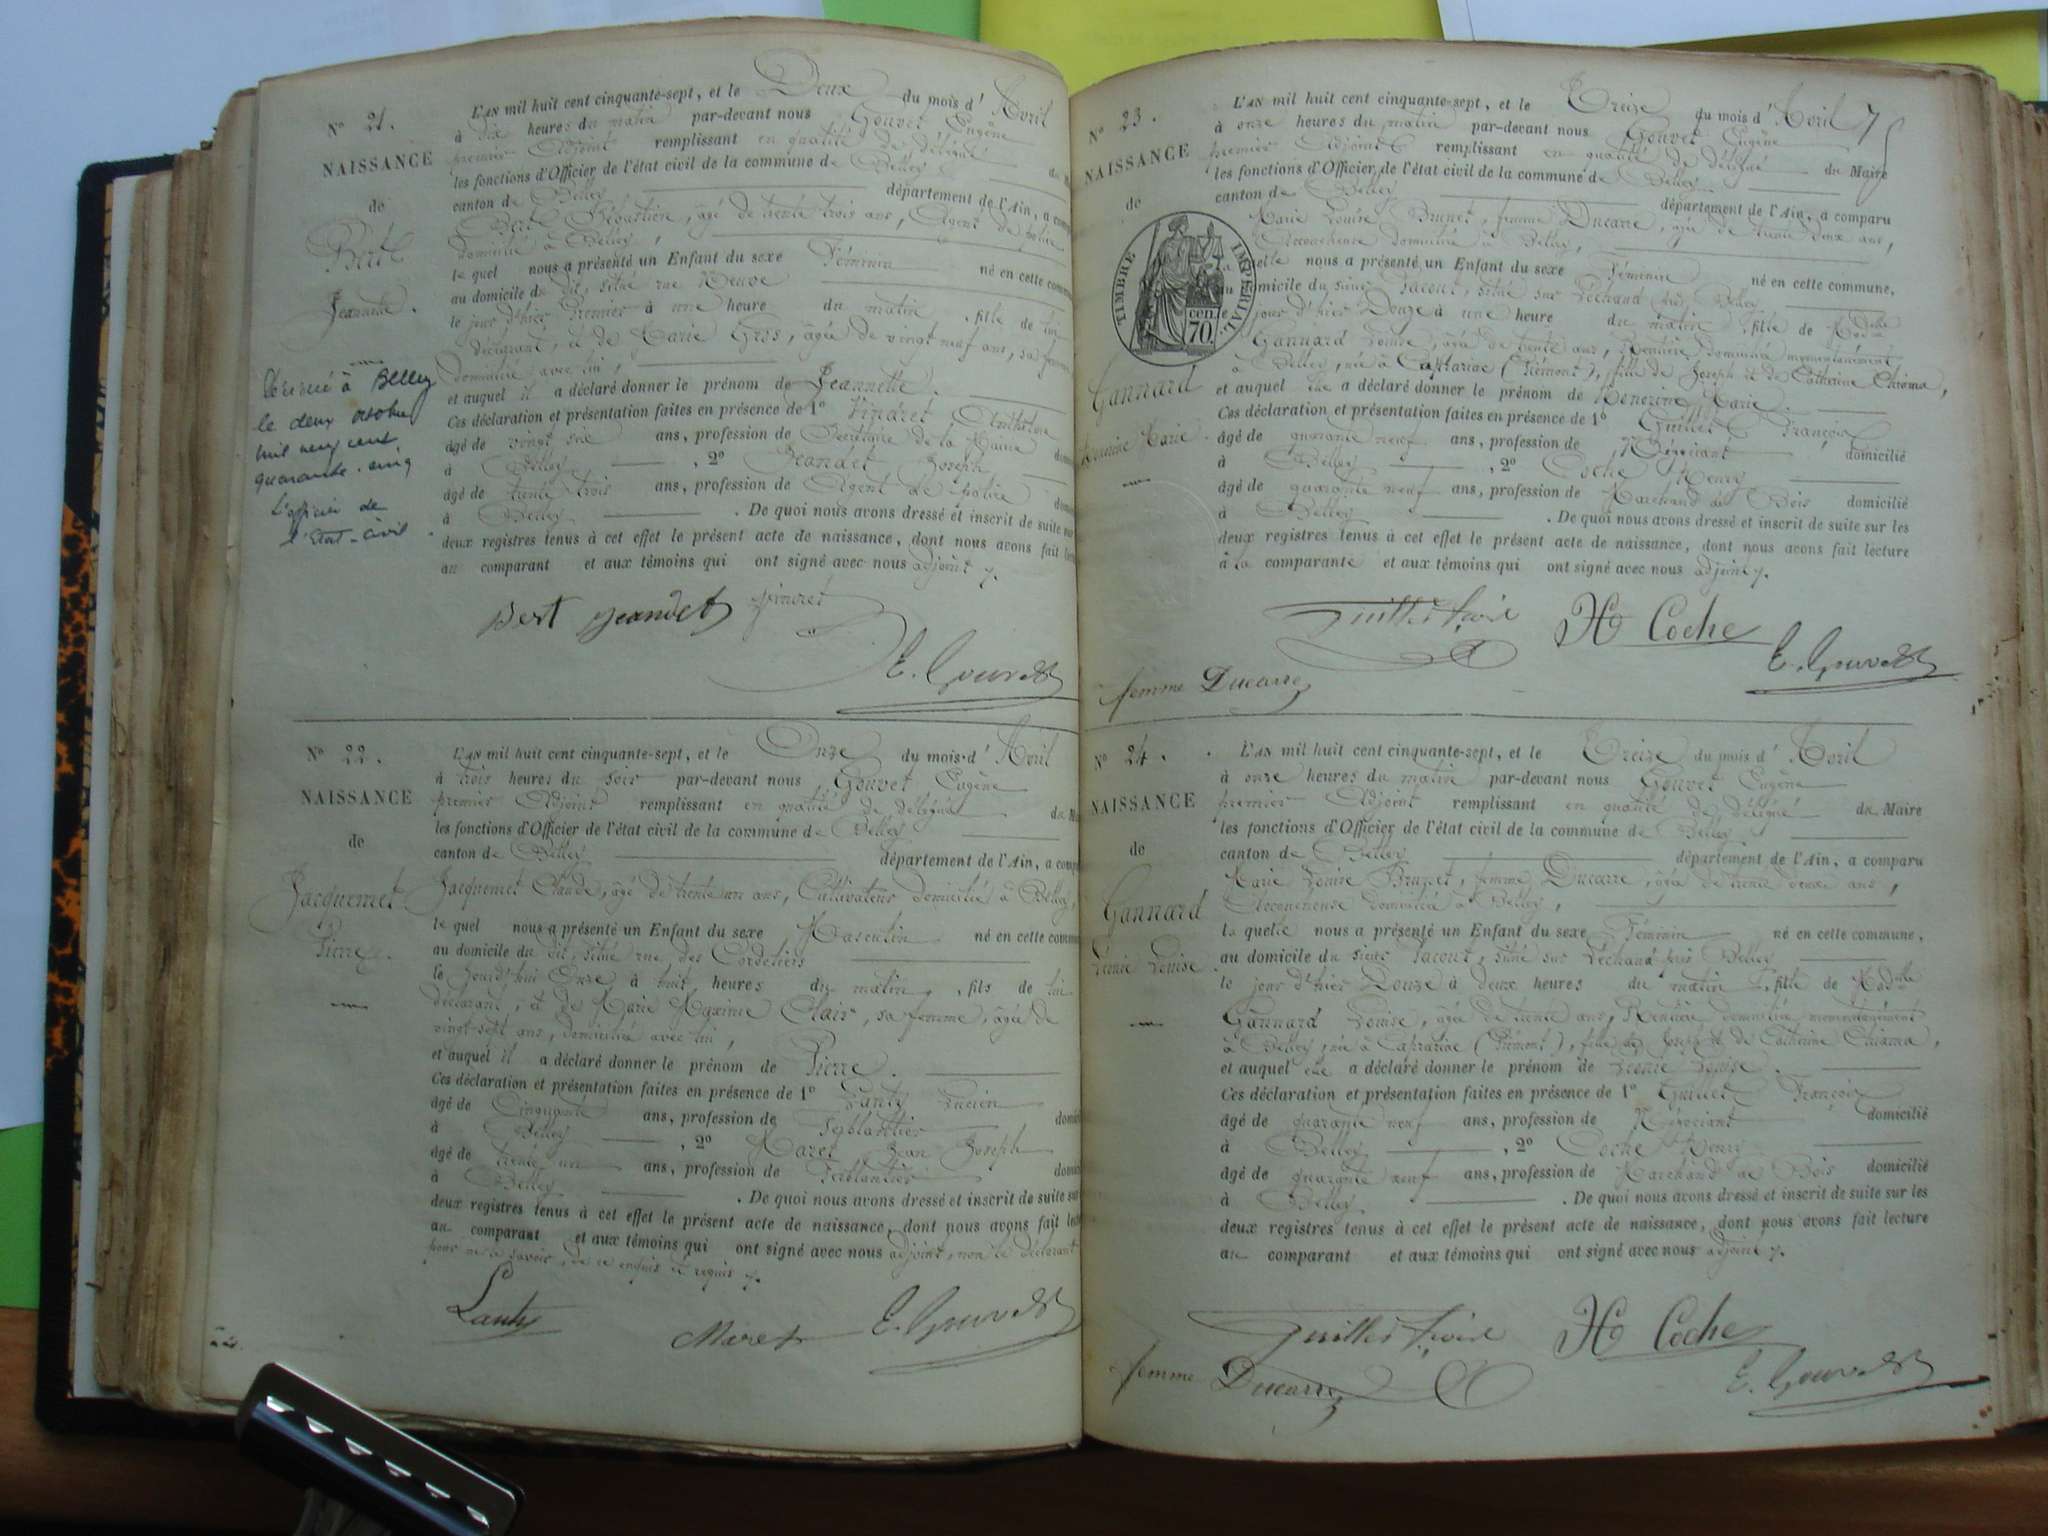 N° 21.
NAISSANCE
de
Bert
Jeannette.
Décédée à Belley
le deux octobre
mil neuf cent
quarante-cinq
L'officier de
l'Etat-civil
L'AN mil huit cent cinquante-sept, et le Deux du mois d'Avril
à dix heures du matin par-devant nous Gouvet Eugène
premier Adjoint remplissant en qualité de délégué du
les fonctions d'Officier de l'état civil de la commune de Belley
canton de Belley département de l'Ain, a comparu
Bert Sébastien, âgé de trente trois ans, Agent de police
domicilié à Belley,
le quel nous a présenté un Enfant du sexe Féminin né en cette commune
au domicile du dit, situé rue Neuve
le jour d'hier Premier à une heure du matin, fille de lui
déclarant, et de Marie Gros, âgée de vingt neuf ans, sa femme
domiciliée avec lui,
et auquel il a déclaré donner le prénom de Jeannette.
Ces déclaration et présentation faites en présence de 1° Vindret Anthelme
âgé de vingt six ans, profession de Secrétaire de la Mairie
à Belley, 2° Jeandet Joseph
âgé de trente trois ans, profession de Agent de police
à Belley. De quoi nous avons dressé et inscrit de suite sur
deux registres tenus à cet effet le présent acte de naissance, dont nous avons fait lecture
au comparant et aux témoins qui ont signé avec nous adjoint
Bert Jeandet Vindret
E. Gouvet
N° 22.
NAISSANCE
de
Jacquemet
Pierre.
L'AN mil huit cent cinquante-sept, et le Onze du mois d'Avril
à trois heures du soir par-devant nous Gouvet Eugène
premier Adjoint remplissant en qualité de délégué du
les fonctions d'Officier de l'état civil de la commune de Belley
canton de Belley département de l'Ain, a comparu
Jacquemet Claude, âgé de trente un ans, Cultivateur domicilié à Belley,
le quel nous a présenté un Enfant du sexe Masculin né en cette commune
au domicile du dit, situé rue des Cordeliers
le jourd'hui Onze à huit heures du matin, fils de lui
déclarant, et de Marie Maxime Clair, sa femme, âgée de
vingt sept ans, domiciliée avec lui,
et auquel il a déclaré donner le prénom de Pierre.
Ces déclaration et présentation faites en présence de 1° Lantz Lucien
âgé de Cinquante ans, profession de Ferblantier
à Belley, 2° Maret Jean Joseph
âgé de trente un ans, profession de Ferblantier
à Belley. De quoi nous avons dressé et inscrit de suite sur
deux registres tenus à cet effet le présent acte de naissance, dont nous avons fait lecture
au comparant et aux témoins qui ont signé avec nous adjoint, non le déclarant
pour ne le savoir, de ce enquis et requis
Lantz Maret E. Gouvet
N° 23.
NAISSANCE
de
TIMBRE IMPÉRIAL
70 cen.
Gannard
Marie.
L'AN mil huit cent cinquante-sept, et le Treize du mois d'Avril
à onze heures du matin par-devant nous Gouvet Eugène
premier Adjoint remplissant en qualité de délégué du Maire
les fonctions d'Officier de l'état civil de la commune de Belley
canton de Belley département de l'Ain, a comparu
Marie Louise Brunet, femme Ducarre, âgée de trente deux ans,
Accoucheuse domiciliée à Belley,
la quelle nous a présenté un Enfant du sexe Féminin né en cette commune,
au domicile du sieur Jacout, situé sur Léchaud près Belley
le jour d'hier Douze à une heure du matin, fille de Madlle
Gannard Louise, âgée de trente ans, Rentière domiciliée momentanément
à Belley, née à (Piémont), fille de Joseph et de Catherine
et auquel elle a déclaré donner le prénom de Marie.
Ces déclaration et présentation faites en présence de 1° Guillet François
âgé de quarante neuf ans, profession de Négociant domicilié
à Belley, 2° Coche Henry
âgé de quarante neuf ans, profession de Marchand de Bois domicilié
à Belley. De quoi nous avons dressé et inscrit de suite sur les
deux registres tenus à cet effet le présent acte de naissance, dont nous avons fait lecture
à la comparante et aux témoins qui ont signé avec nous adjoint
H Coche E. Gouvet
femme Ducarre
N° 24.
NAISSANCE
de
Gannard
Léonie Louise.
L'AN mil huit cent cinquante-sept, et le Treize du mois d'Avril
à onze heures du matin par-devant nous Gouvet Eugène
premier Adjoint remplissant en qualité de délégué du Maire
les fonctions d'Officier de l'état civil de la commune de Belley
canton de Belley département de l'Ain, a comparu
Marie Louise Brunet, femme Ducarre, âgée de trente deux ans,
Accoucheuse domiciliée à Belley,
la quelle nous a présenté un Enfant du sexe Féminin né en cette commune,
au domicile du sieur Jacout, situé sur Léchaud près Belley
le jour d'hier Douze à deux heures du matin, fille de Madlle
Gannard Louise, âgée de trente ans, Rentière domiciliée momentanément
à Belley, née à (Piémont), fille de Joseph et de Catherine
et auquel elle a déclaré donner le prénom de Léonie Louise.
Ces déclaration et présentation faites en présence de 1° Guillet François
âgé de quarante neuf ans, profession de Négociant domicilié
à Belley, 2° Coche Henry
âgé de quarante neuf ans, profession de Marchand de Bois domicilié
à Belley. De quoi nous avons dressé et inscrit de suite sur les
deux registres tenus à cet effet le présent acte de naissance, dont nous avons fait lecture
au comparant et aux témoins qui ont signé avec nous adjoint
H Coche
femme Ducarre E. Gouvet